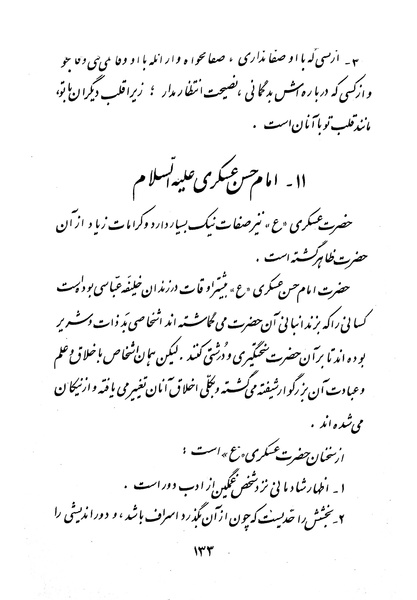 ۳- ازکسی که با او صفا نداری ، صفا نخواه و از آنکه با او وفا نمی کنی وفا مجو
و از کسی که درباره اش بدگمانی ، نصیحت انتظار مدار ؛ زیرا قلب دیگران با تو،
مانند قلب تو با آنان است .
۱۱- امام حسن عسکری علیه السّلام
حضرت عسکری «ع» نیز صفات نیک بسیار دارد و کرامات زیاد از آن
حضرت ظاهر گشته است .
حضرت امام حسن عسکری «ع» بیشتر اوقات در زندان خلیفه عبّاسی بوده است
کسانی را که بزندانبانی آن حضرت می گماشته اند اشخاصی بد ذات و شریر
بوده اند تا بر آن حضرت سختگیری و درشتی کنند . لیکن همان اشخاص با خلاق و علم
و عبادت آن بزرگوار شیفته می گشته و بکلّی اخلاق آنان تغییر می یافته و از نیکان
می شده اند .
از سخنان حضرت عسکری «ع» است :
۱- اظهار شادمانی نزد شخص غمگین از ادب دور است .
۲- بخشش را حدّیست که چون از آن بگذرد اسراف باشد ، و دوراندیشی را
۱۳۳